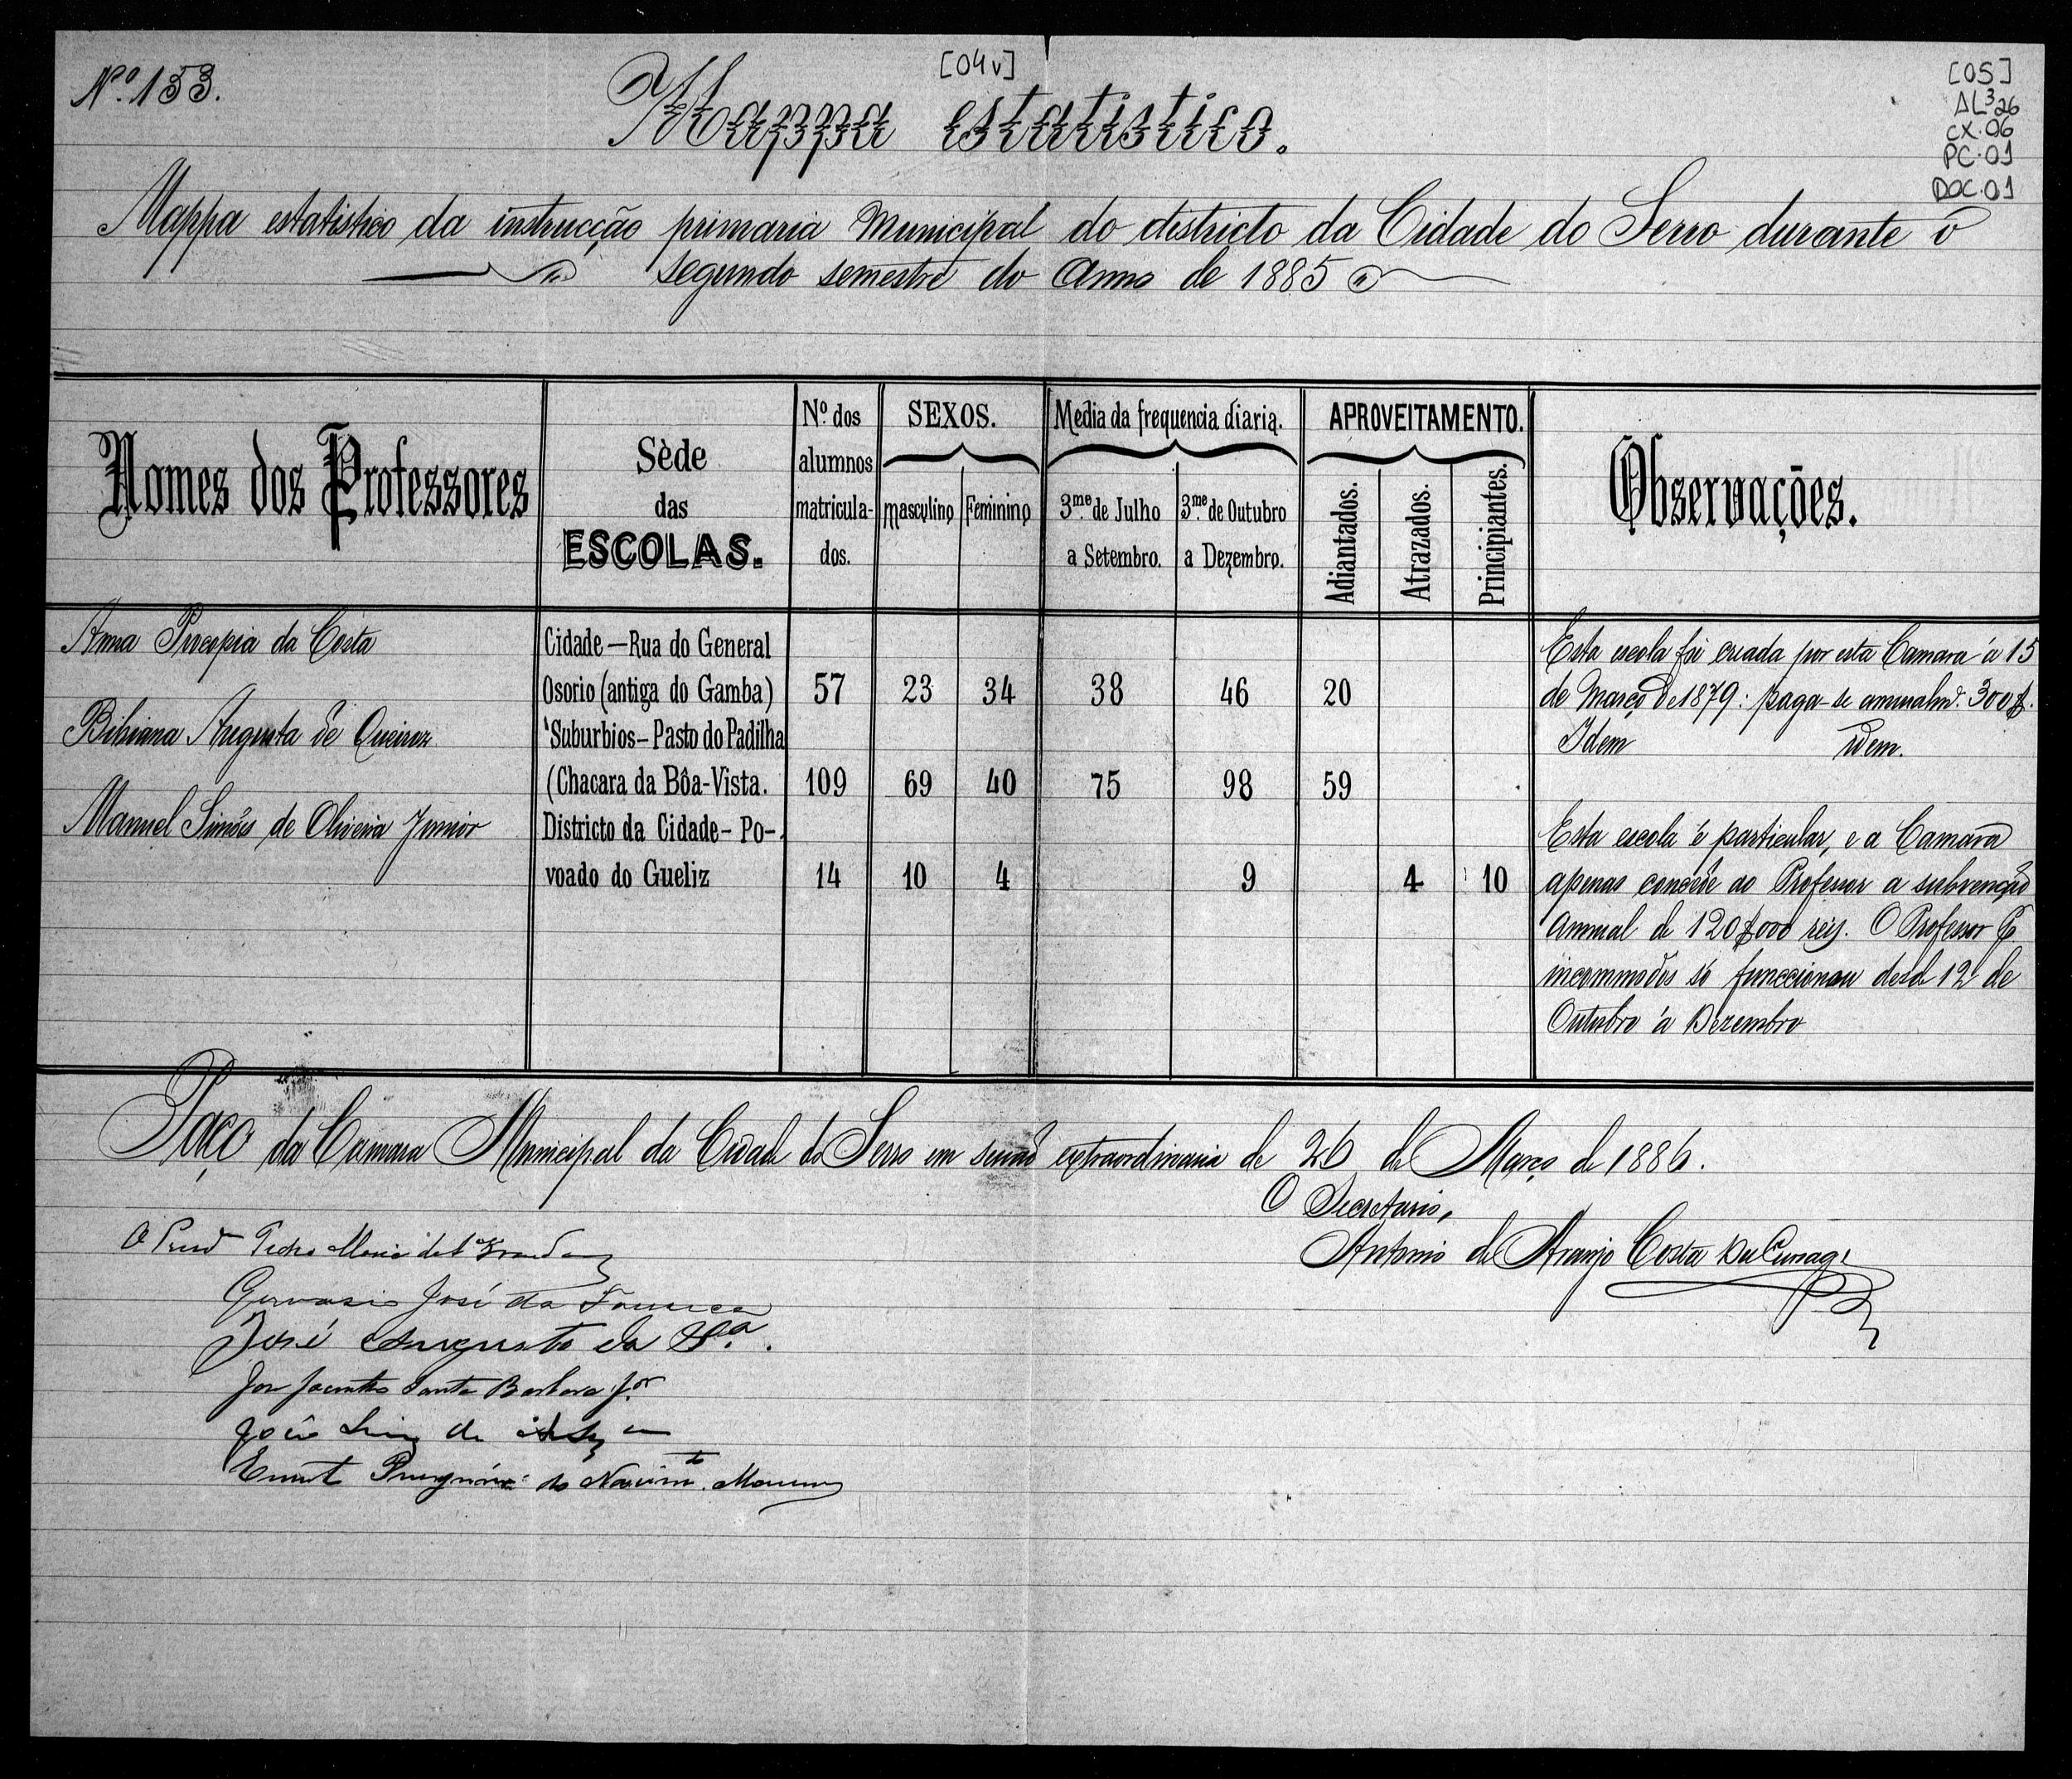 [04v]
[05]
AL³26
CX.06
PC.01
DOC.01
Nº. 133.
Mappa estatistico.
Mappa estatistico da instrucção primaria Municipal do districto da Cidade do Serro durante o
segundo semestre do Anno de 1885
Nomes dos Professores
Sède
das
ESCOLAS.
Nº. dos
alumnos
matricula-
dos.
SEXOS.
masculino
Feminino
Media da frequencia diaria.
3.me de Julho
a Setembro.
3.me de Outubro
a Dezembro.
APROVEITAMENTO.
Adiantados.
Atrazados.
Principiantes.
Observações.
Anna Procopia da Costa
Cidade — Rua do General
Osorio (antiga do Gamba) 57 23 34 38 46 20
Esta escola foi creada por esta Camara á 15
de Março de 1879: paga-se annualme. 300$.
Bibiana Augusta de Queiroz
Suburbios – Pasto do Padilha
(Chacara da Bôa-Vista. 109 69 40 75 98 59
Idem idem.
Manuel Simões de Oliveira Junior
Districto da Cidade – Po-
voado do Gueliz 14 10 4 9 4 10
Esta escola é particular, e a Camara
apenas concede ao Professor a subvenção
annual de 120$000 reis. O Professor
incommodos só funccionou desde 12 de
Outubro á Dezembro
Paço da Camara Municipal da Cidade do Serro em sessão extraordinaria de 26 de Março de 1886.
O Secretario,
Antonio de Araujo Costa
O Presid.e Pedro Maria
Gervasio José da Fonseca
José Augusto da
José Jacintho Santa Barbara Jor
João Luiz de
do Nascimto. Moreira